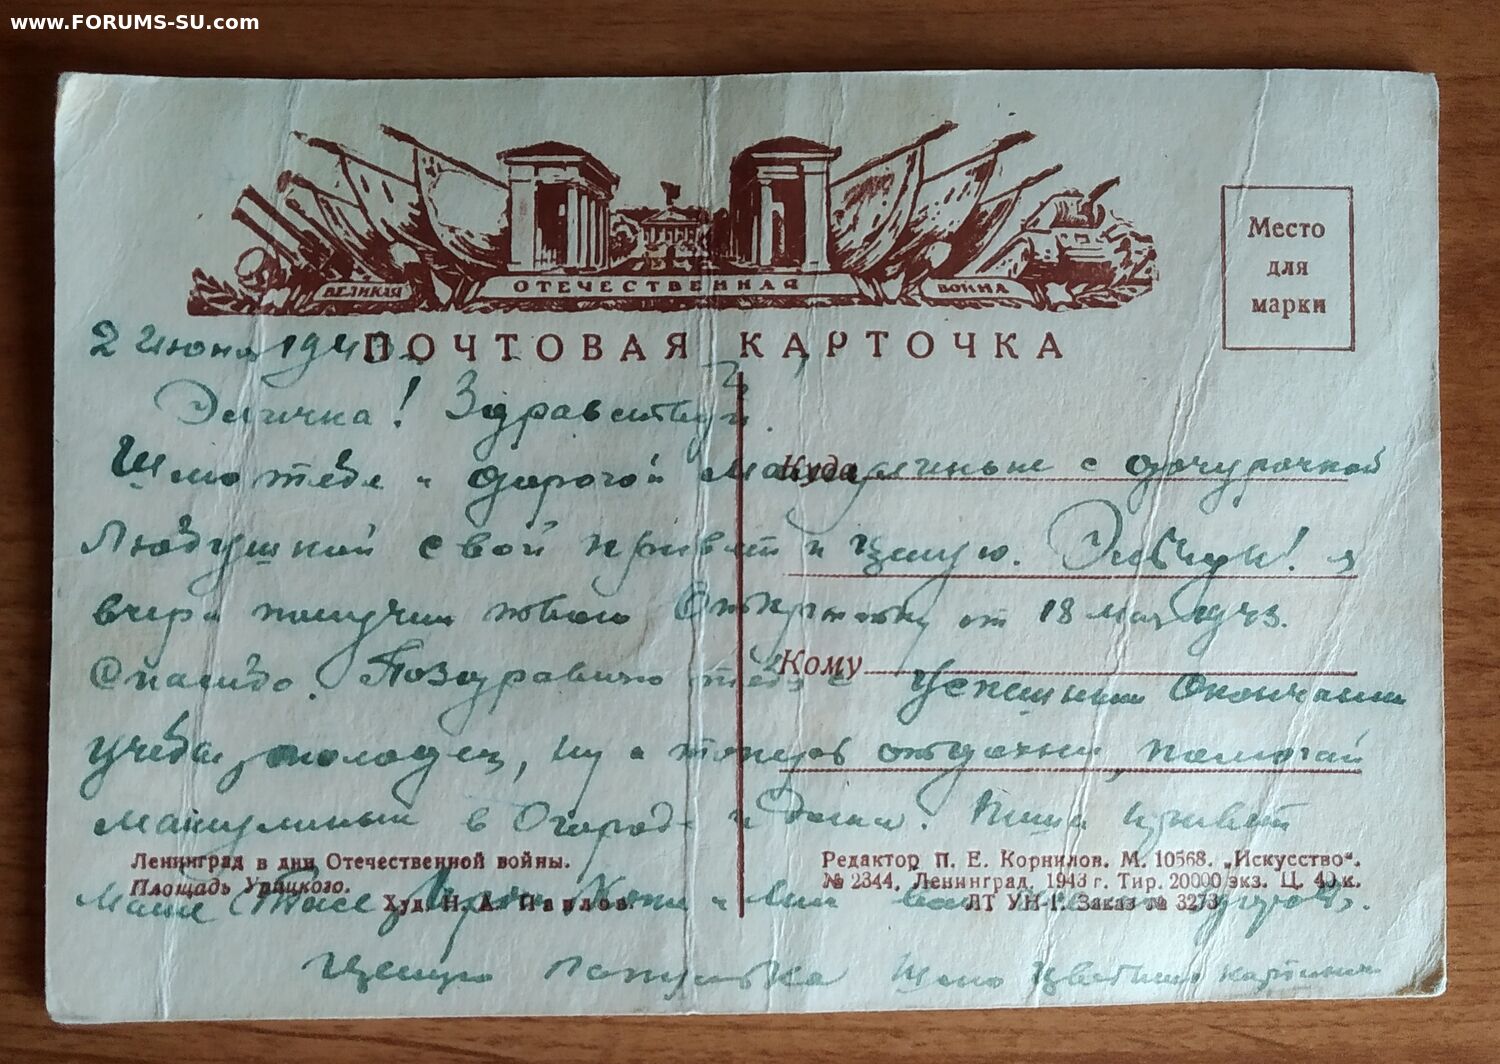 www.FORUMS-SU.com
ВЕЛИКАЯ ОТЕЧЕСТВЕННАЯ ВОЙНА
ПОЧТОВАЯ КАРТОЧКА
Место
для
марки
2 июня 1943
Эличка! Здравствуй.
Куда
Шлю тебе и дорогой мамулиньке с дочурочкой
Любушкой свой привет и целую. Эльчик! я
вчера получил твою открытку от 18 мая 1943.
Кому
Спасибо. Поздравляю тебя с успешным окончанием
учебы, молодец, ну а теперь отдохни, помогай
мамулиньке в огороде и дома. Пиши привет
Ленинград в дни Отечественной войны.
Площадь Урицкого.
Худ. Н. А. Павлов.
Редактор П. Е. Корнилов. М. 10568. „Искусство".
№ 2344. Ленинград. 1943 г. Тир. 20000 экз. Ц. 40 к.
ЛТ УН-1. Заказ № 3273
Маше Тасе и
Целую папулька Шлю цветную картинку